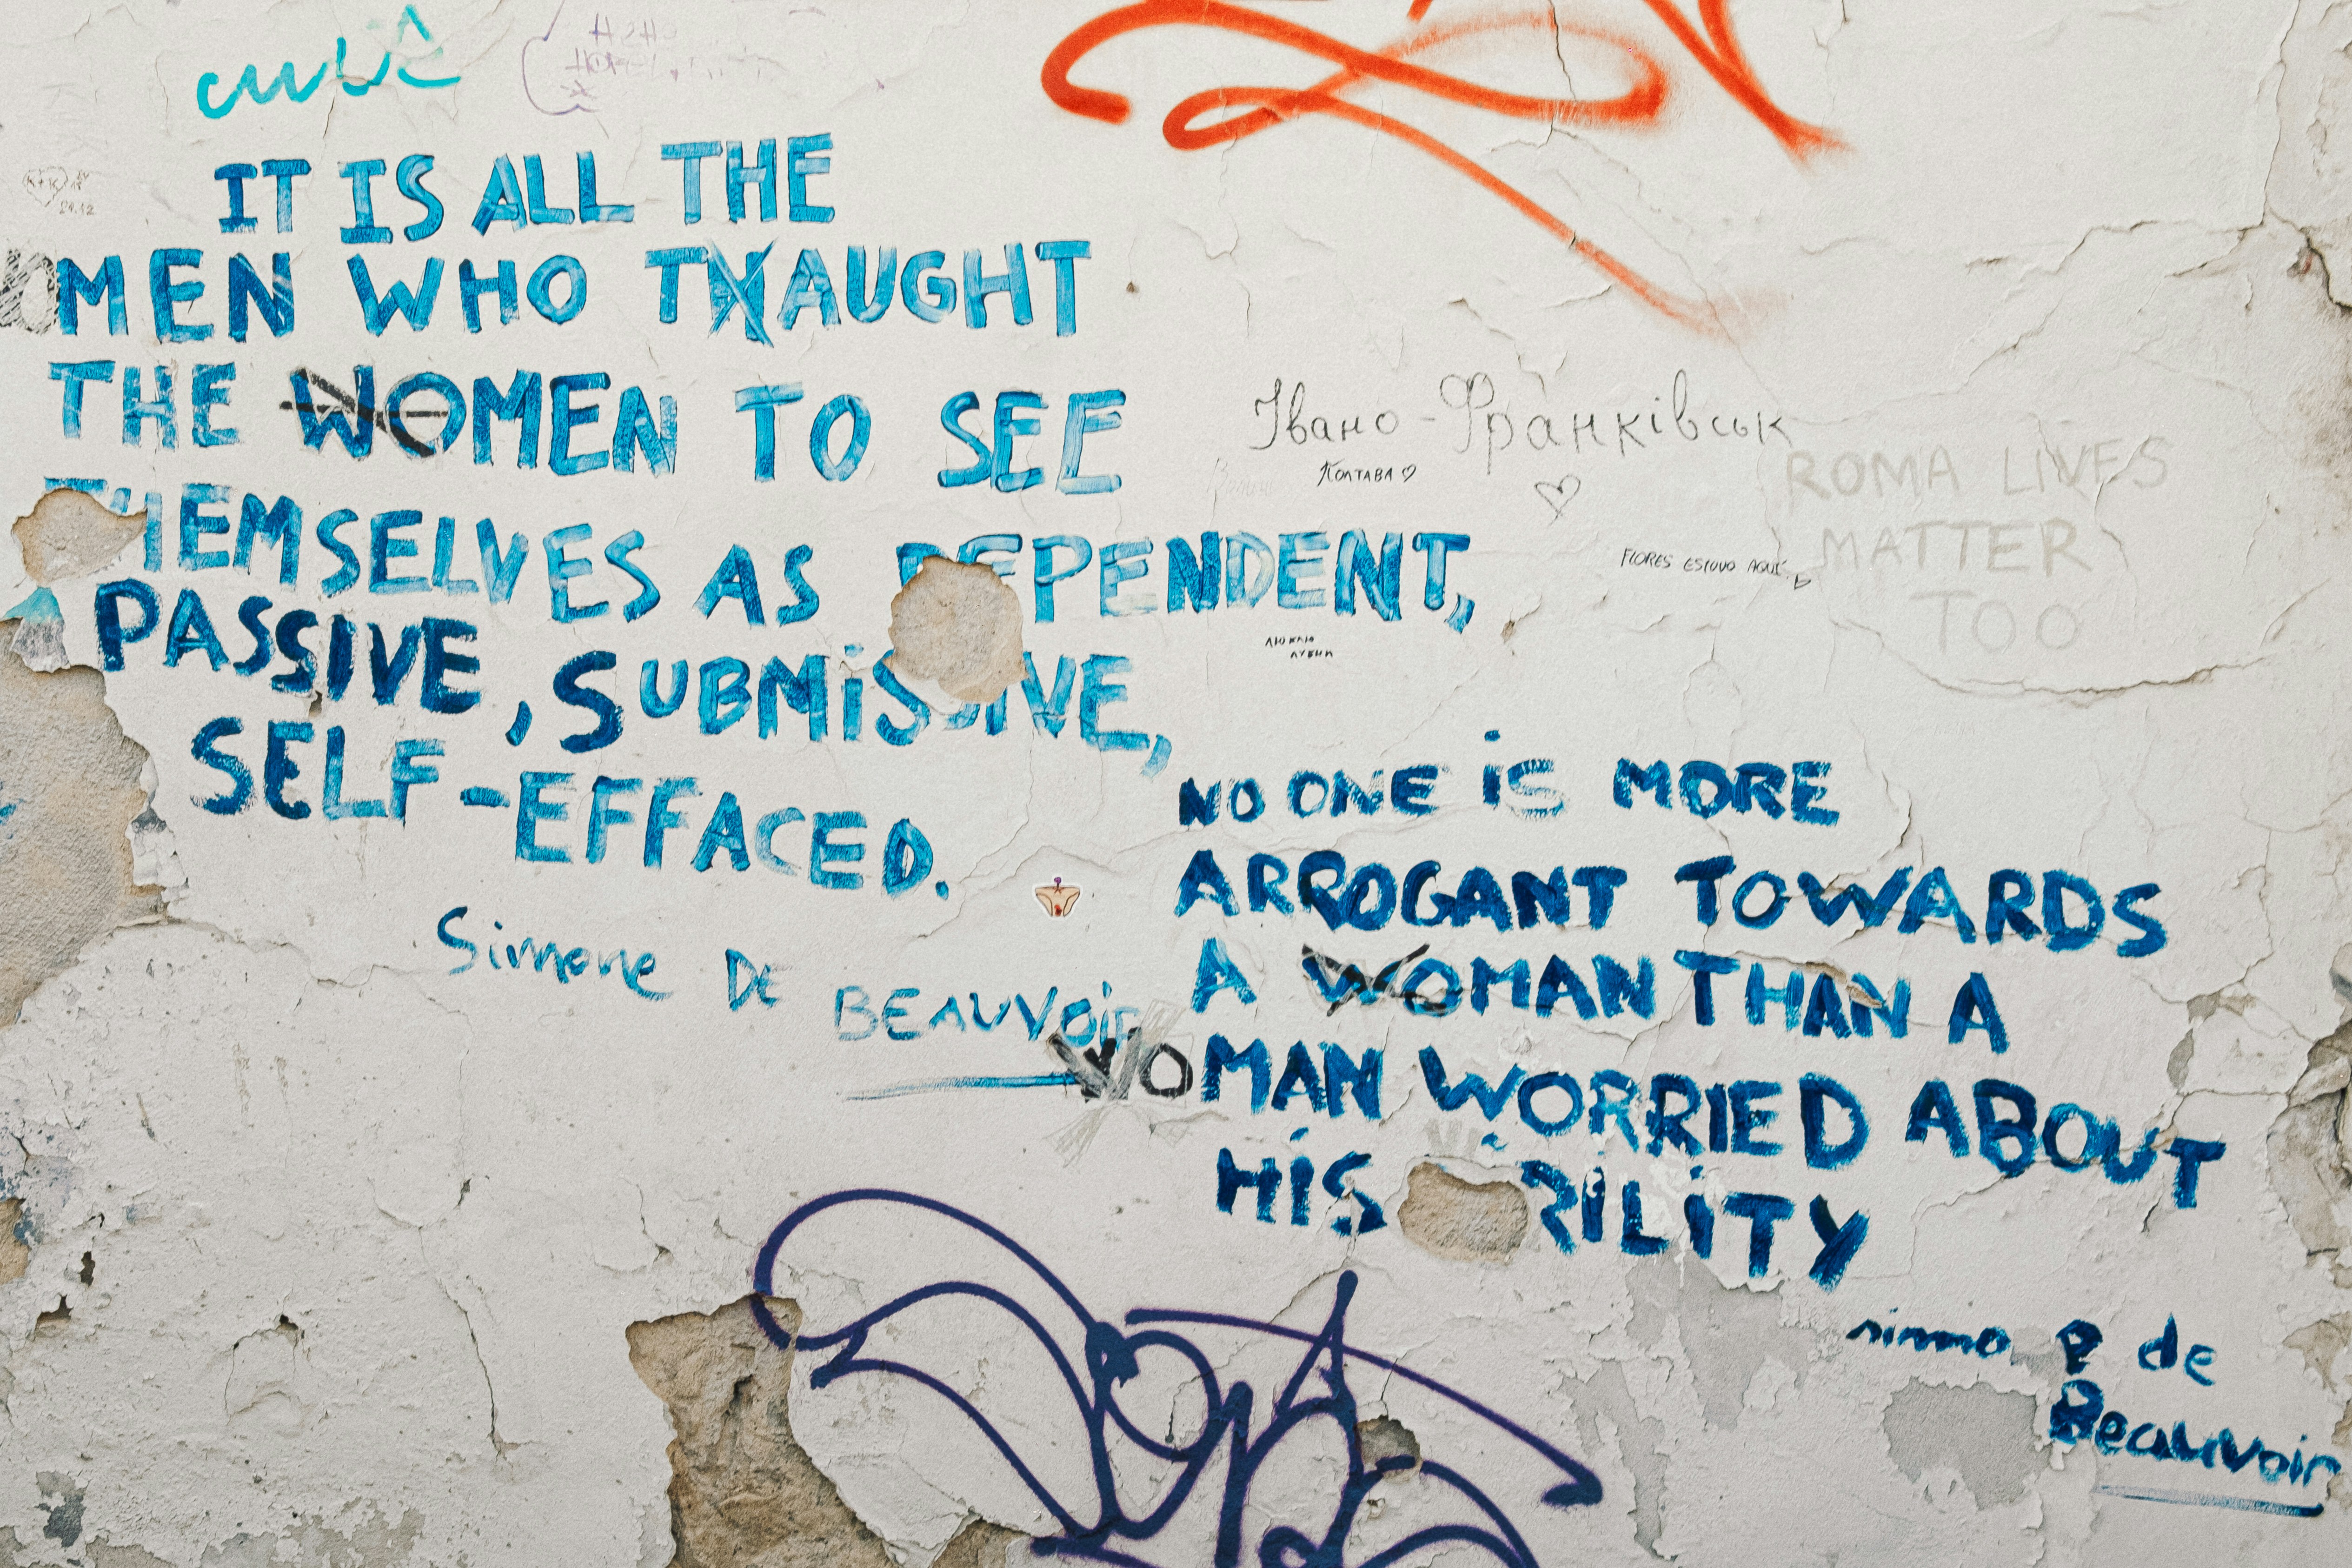 IT IS ALL THE
MEN WHO TAUGHT
THE WOMEN TO SEE
THEMSELVES AS DEPENDENT,
PASSIVE, SUBMISSIVE,
SELF-EFFACED.
Simone DE BEAUVOIR
Івано-Франківськ
Полтава ♡
ROMA LIVES
MATTER
TOO
FLORES ESTUVO AQUÍ
NO ONE IS MORE
ARROGANT TOWARDS
A WOMAN THAN A
WOMAN WORRIED ABOUT
HIS RILITY
de
Beauvoir